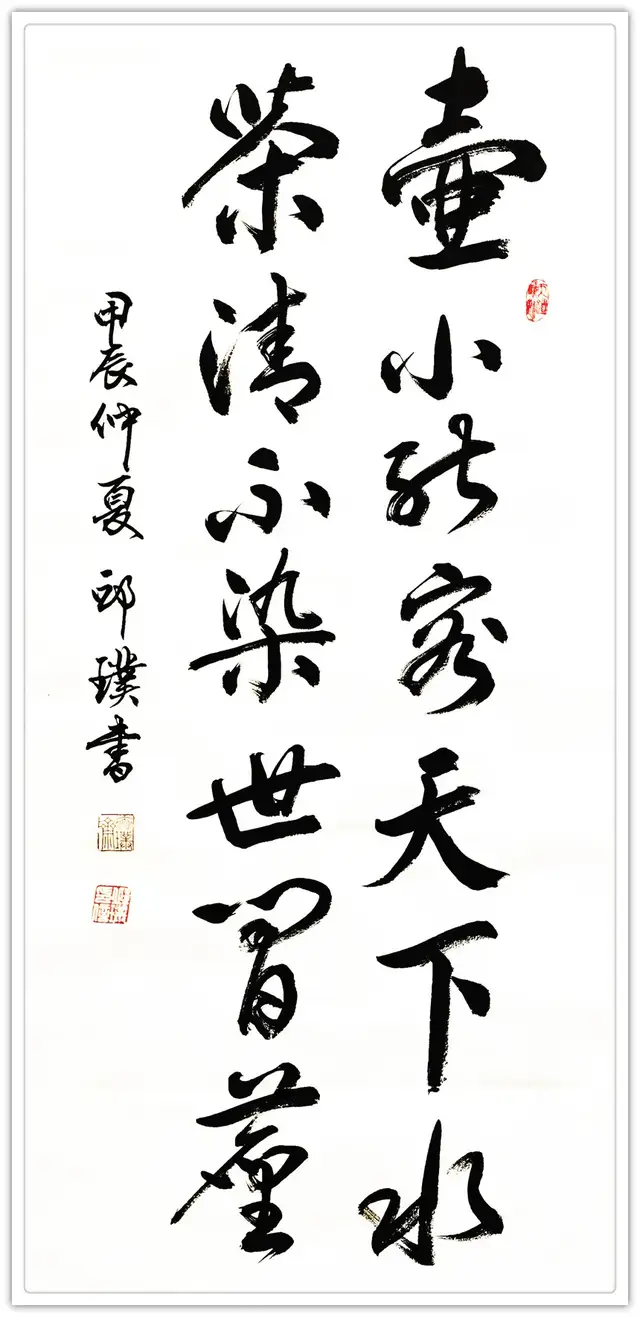 壺小能容天下水
茶清不染世間塵
甲辰仲夏 邱璞書